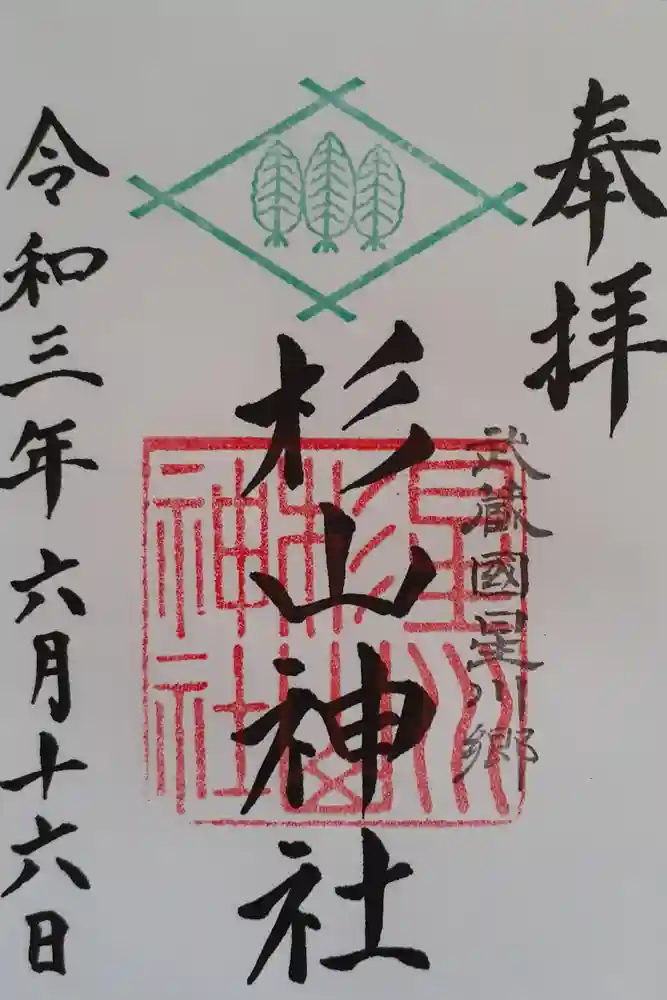 奉拝
武蔵國星川郷
杉山神社
星川
杉山
神社
令和三年六月十六日